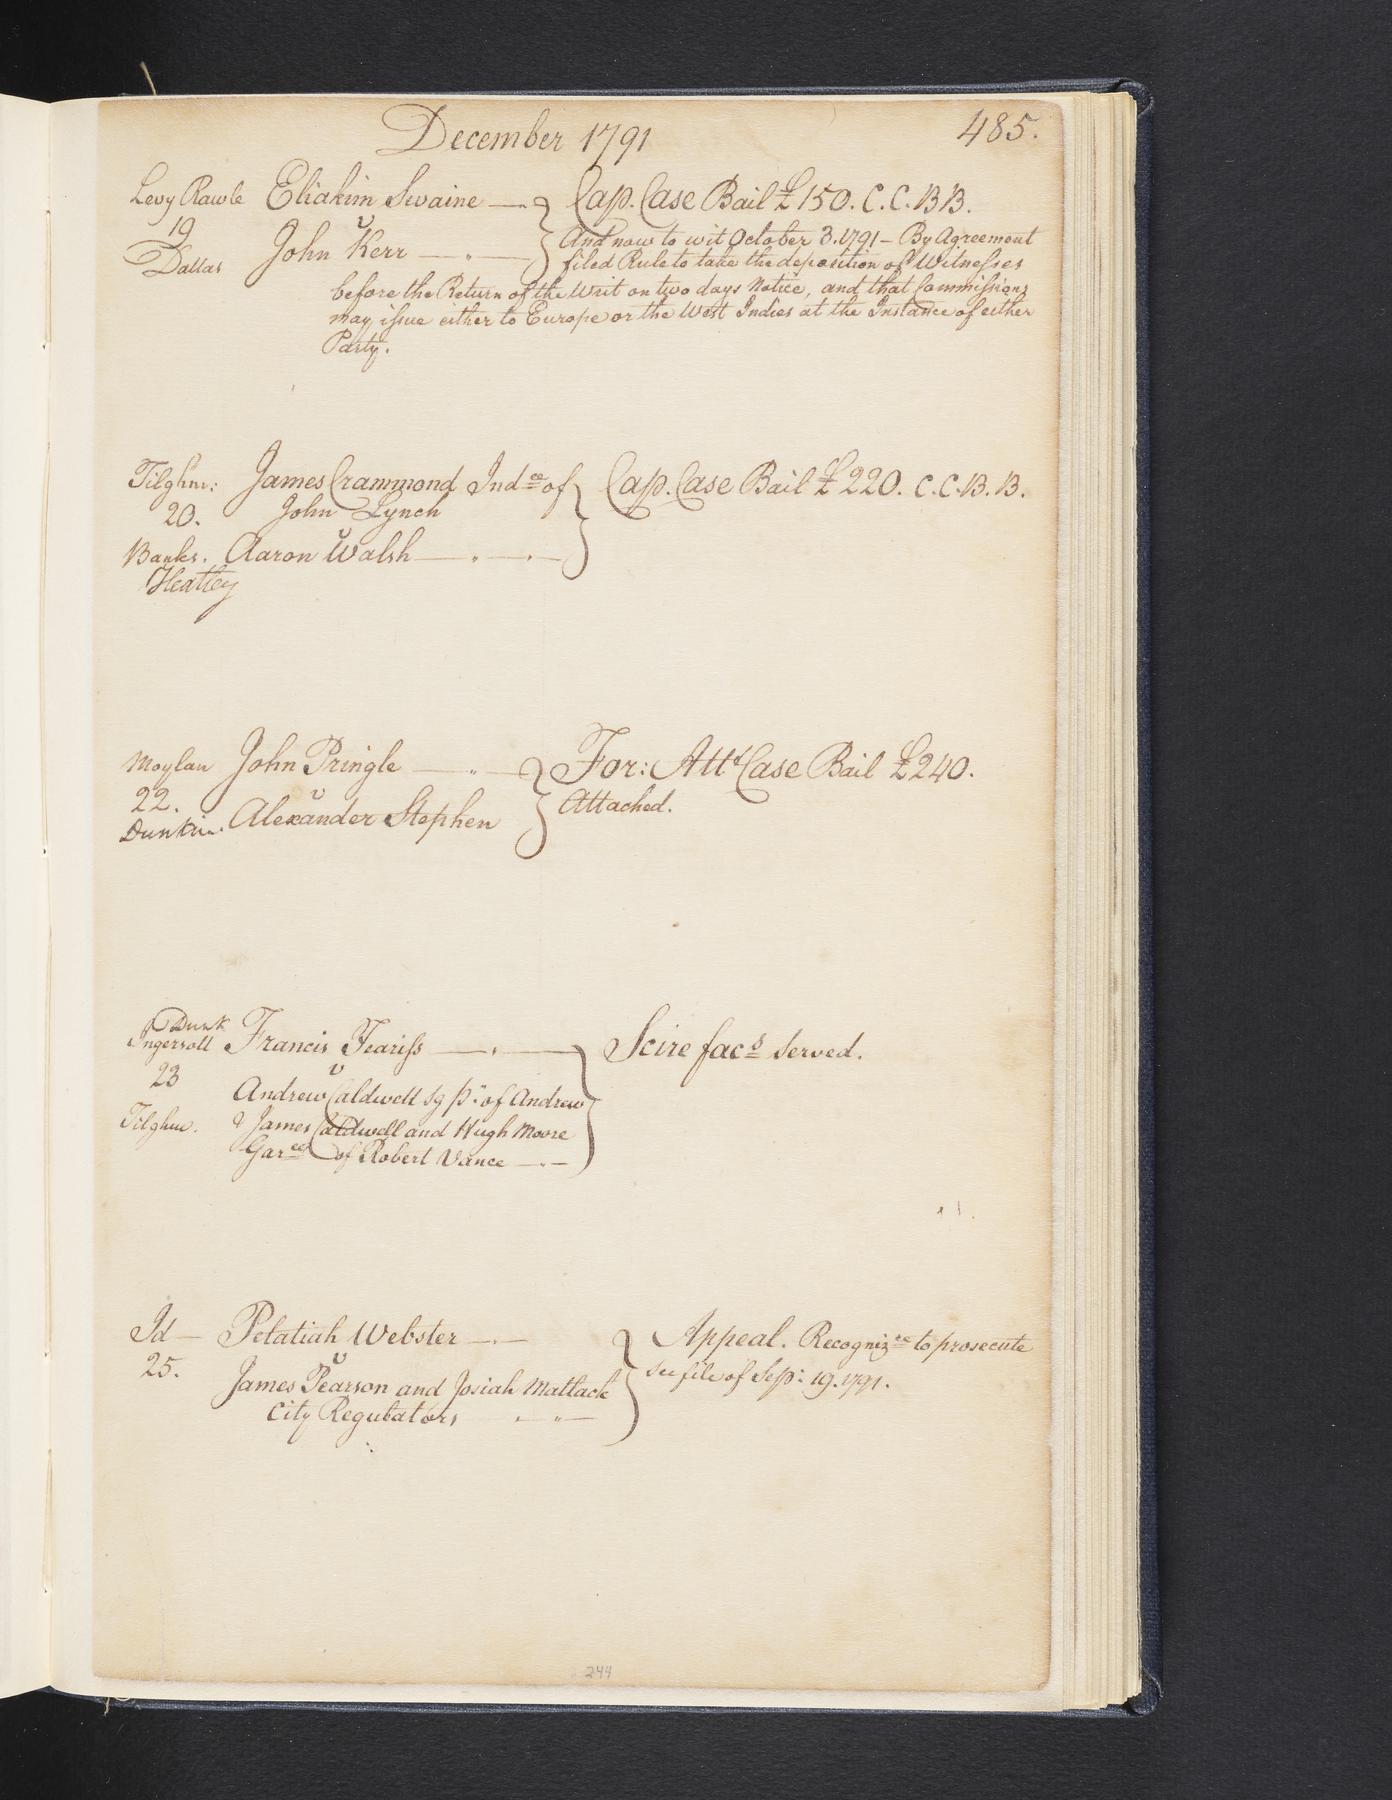 December 1791
485.
Levy Rawle Eliakim Swaine Cap. Case Bail £150. C. C. B B.
19 v And now to wit October 3. 1791 - By Agreement
Dallas John Kerr filed Rule to take the deposition of Witnesses
before the Return of the Writ on two days Notice, and that Commissions
may issue either to Europe or the West Indies at the Instance of either
Party.
Tilghm: James Crammond Indce of Cap. Case Bail £220. C. C. B. B.
20. John Lynch
v
Banks. Aaron Walsh
Heatley
Moylan John Pringle For: Attt Case Bail £240.
22. v Attached.
Dunkin. Alexander Stephen
Dunk
Ingersoll Francis Feariss Scire facs Served.
23 v
Andrew Caldwell Sg p: of Andrew
Tilghm. & James Caldwell and Hugh Moore
Garees of Robert Vance
Id - Pelatiah Webster Appeal. Recognizce to prosecute
25. v see file of Sep: 19. 1791.
James Pearson and Josiah Matlack
City Regulators
244